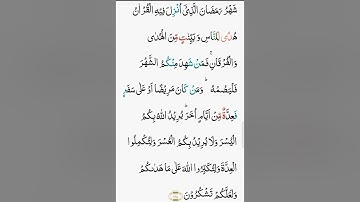 شَهْرُ رَمَضَانَ الَّذِيْٓ اُنْزِلَ فِيْهِ الْقُرْاٰنُ
هُدًى لِّلنَّاسِ وَ بَيِّنٰتٍ مِّنَ الْهُدٰى
وَالْفُرْقَانِۚ فَمَنْ شَهِدَ مِنْكُمُ الشَّهْرَ
فَلْيَصُمْهُ ؕ وَمَنْ كَانَ مَرِيْضًا اَوْ عَلٰى سَفَرٍ
فَعِدَّةٌ مِّنْ اَيَّامٍ اُخَرَ ؕ يُرِيْدُ اللّٰهُ بِكُمُ
الْيُسْرَ وَلَا يُرِيْدُ بِكُمُ الْعُسْرَ وَلِتُكْمِلُوا
الْعِدَّةَ وَلِتُكَبِّرُوا اللّٰهَ عَلٰى مَا هَدٰىكُمْ
وَلَعَلَّكُمْ تَشْكُرُوْنَ